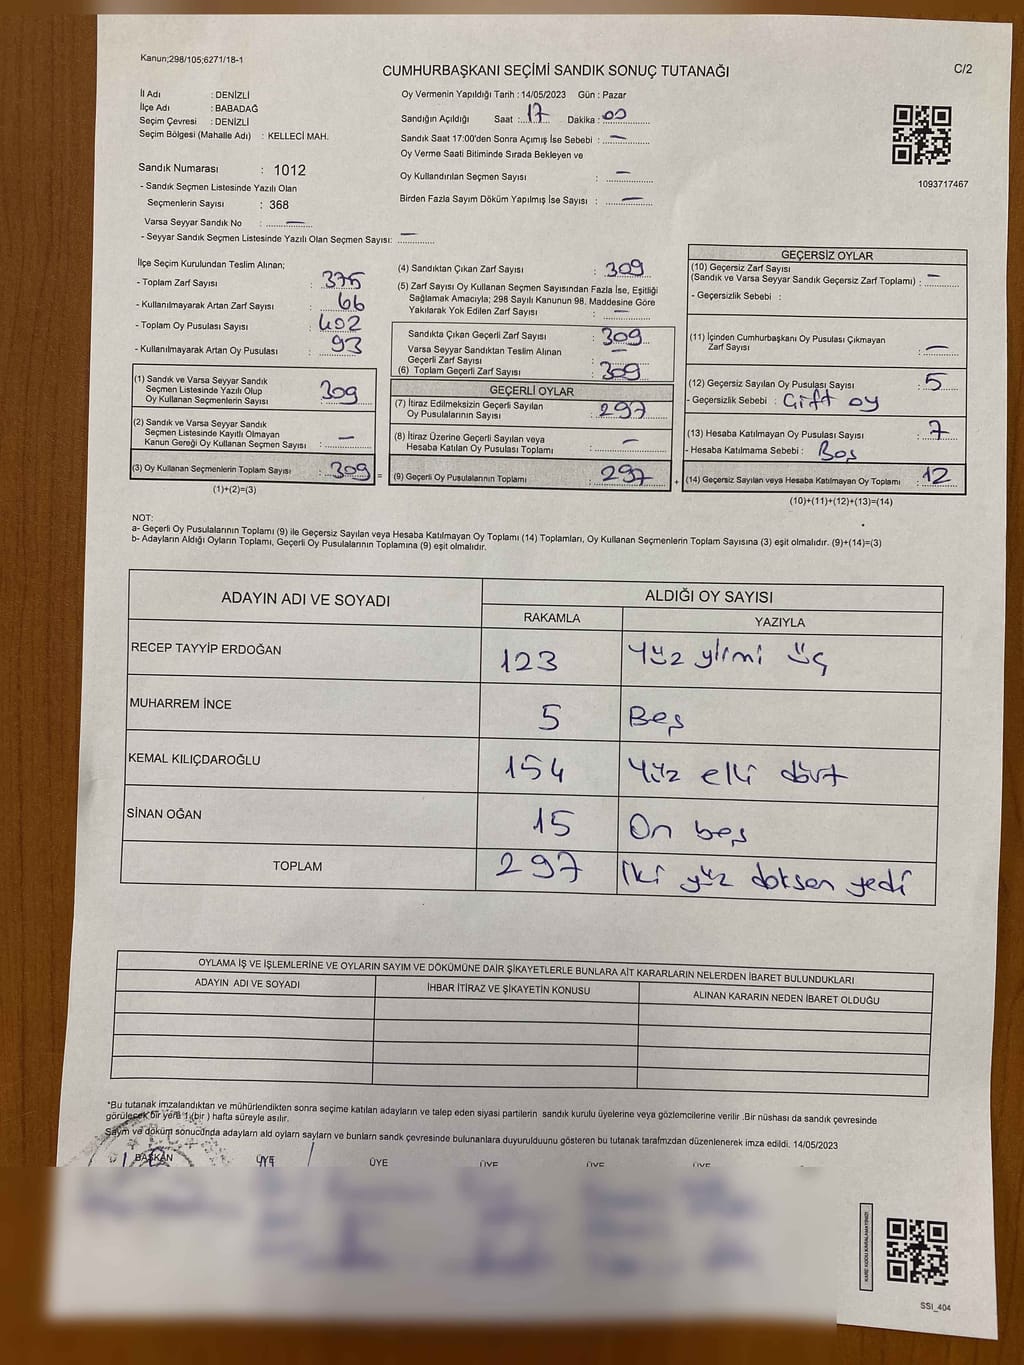 Kanun;298/105;6271/18-1
CUMHURBAŞKANI SEÇİMİ SANDIK SONUÇ TUTANAĞI
C/2
İl Adı : DENİZLİ
İlçe Adı : BABADAĞ
Seçim Çevresi : DENİZLİ
Seçim Bölgesi (Mahalle Adı) : KELLECİ MAH.
Sandık Numarası : 1012
- Sandık Seçmen Listesinde Yazılı Olan
Seçmenlerin Sayısı : 368
Varsa Seyyar Sandık No : —
- Seyyar Sandık Seçmen Listesinde Yazılı Olan Seçmen Sayısı: —
Oy Vermenin Yapıldığı Tarih : 14/05/2023 Gün : Pazar
Sandığın Açıldığı Saat : 17 Dakika : 00
Sandık Saat 17:00'den Sonra Açımış İse Sebebi : —
Oy Verme Saati Bitiminde Sırada Bekleyen ve
Oy Kullandırılan Seçmen Sayısı : —
Birden Fazla Sayım Döküm Yapılmış İse Sayısı : —
1093717467
İlçe Seçim Kurulundan Teslim Alınan;
- Toplam Zarf Sayısı : 375
- Kullanılmayarak Artan Zarf Sayısı : 66
- Toplam Oy Pusulası Sayısı : 402
- Kullanılmayarak Artan Oy Pusulası : 93
(1) Sandık ve Varsa Seyyar Sandık
Seçmen Listesinde Yazılı Olup
Oy Kullanan Seçmenlerin Sayısı : 309
(2) Sandık ve Varsa Seyyar Sandık
Seçmen Listesinde Kayıtlı Olmayan
Kanun Gereği Oy Kullanan Seçmen Sayısı : —
(3) Oy Kullanan Seçmenlerin Toplam Sayısı : 309 =
(1)+(2)=(3)
(4) Sandıktan Çıkan Zarf Sayısı : 309
(5) Zarf Sayısı Oy Kullanan Seçmen Sayısından Fazla İse, Eşitliği
Sağlamak Amacıyla; 298 Sayılı Kanunun 98. Maddesine Göre
Yakılarak Yok Edilen Zarf Sayısı : —
Sandıkta Çıkan Geçerli Zarf Sayısı : 309
Varsa Seyyar Sandıktan Teslim Alınan
Geçerli Zarf Sayısı : —
(6) Toplam Geçerli Zarf Sayısı : 309
GEÇERLİ OYLAR
(7) İtiraz Edilmeksizin Geçerli Sayılan
Oy Pusulalarının Sayısı : 297
(8) İtiraz Üzerine Geçerli Sayılan veya
Hesaba Katılan Oy Pusulası Toplamı : —
(9) Geçerli Oy Pusulalarının Toplamı : 297 +
GEÇERSİZ OYLAR
(10) Geçersiz Zarf Sayısı
(Sandık ve Varsa Seyyar Sandık Geçersiz Zarf Toplamı) : —
- Geçersizlik Sebebi :
(11) İçinden Cumhurbaşkanı Oy Pusulası Çıkmayan
Zarf Sayısı : —
(12) Geçersiz Sayılan Oy Pusulası Sayısı : 5
- Geçersizlik Sebebi : Çift oy
(13) Hesaba Katılmayan Oy Pusulası Sayısı : 7
- Hesaba Katılmama Sebebi : Boş
(14) Geçersiz Sayılan veya Hesaba Katılmayan Oy Toplamı : 12
(10)+(11)+(12)+(13)=(14)
NOT:
a- Geçerli Oy Pusulalarının Toplamı (9) ile Geçersiz Sayılan veya Hesaba Katılmayan Oy Toplamı (14) Toplamları, Oy Kullanan Seçmenlerin Toplam Sayısına (3) eşit olmalıdır. (9)+(14)=(3)
b- Adayların Aldığı Oyların Toplamı, Geçerli Oy Pusulalarının Toplamına (9) eşit olmalıdır.
ADAYIN ADI VE SOYADI
ALDIĞI OY SAYISI
RAKAMLA YAZIYLA
RECEP TAYYİP ERDOĞAN 123 Yüz yirmi üç
MUHARREM İNCE 5 Beş
KEMAL KILIÇDAROĞLU 154 Yüz elli dört
SİNAN OĞAN 15 On beş
TOPLAM 297 İki yüz doksan yedi
OYLAMA İŞ VE İŞLEMLERİNE VE OYLARIN SAYIM VE DÖKÜMÜNE DAİR ŞİKAYETLERLE BUNLARA AİT KARARLARIN NELERDEN İBARET BULUNDUKLARI
ADAYIN ADI VE SOYADI İHBAR İTİRAZ VE ŞİKAYETİN KONUSU ALINAN KARARIN NEDEN İBARET OLDUĞU
*Bu tutanak imzalandıktan ve mühürlendikten sonra seçime katılan adayların ve talep eden siyasi partilerin sandık kurulu üyelerine veya gözlemcilerine verilir .Bir nüshası da sandık çevresinde
görülecek bir yere 1.(bir ) hafta süreyle asılır.
Sayım ve döküm sonucunda adayların ald oyların sayların ve bunların sandk çevresinde bulunanlara duyurulduunu gösteren bu tutanak tarafmzdan düzenlenerek imza edildi. 14/05/2023
BAŞKAN ÜYE ÜYE ÜYE ÜYE ÜYE
SSI_404